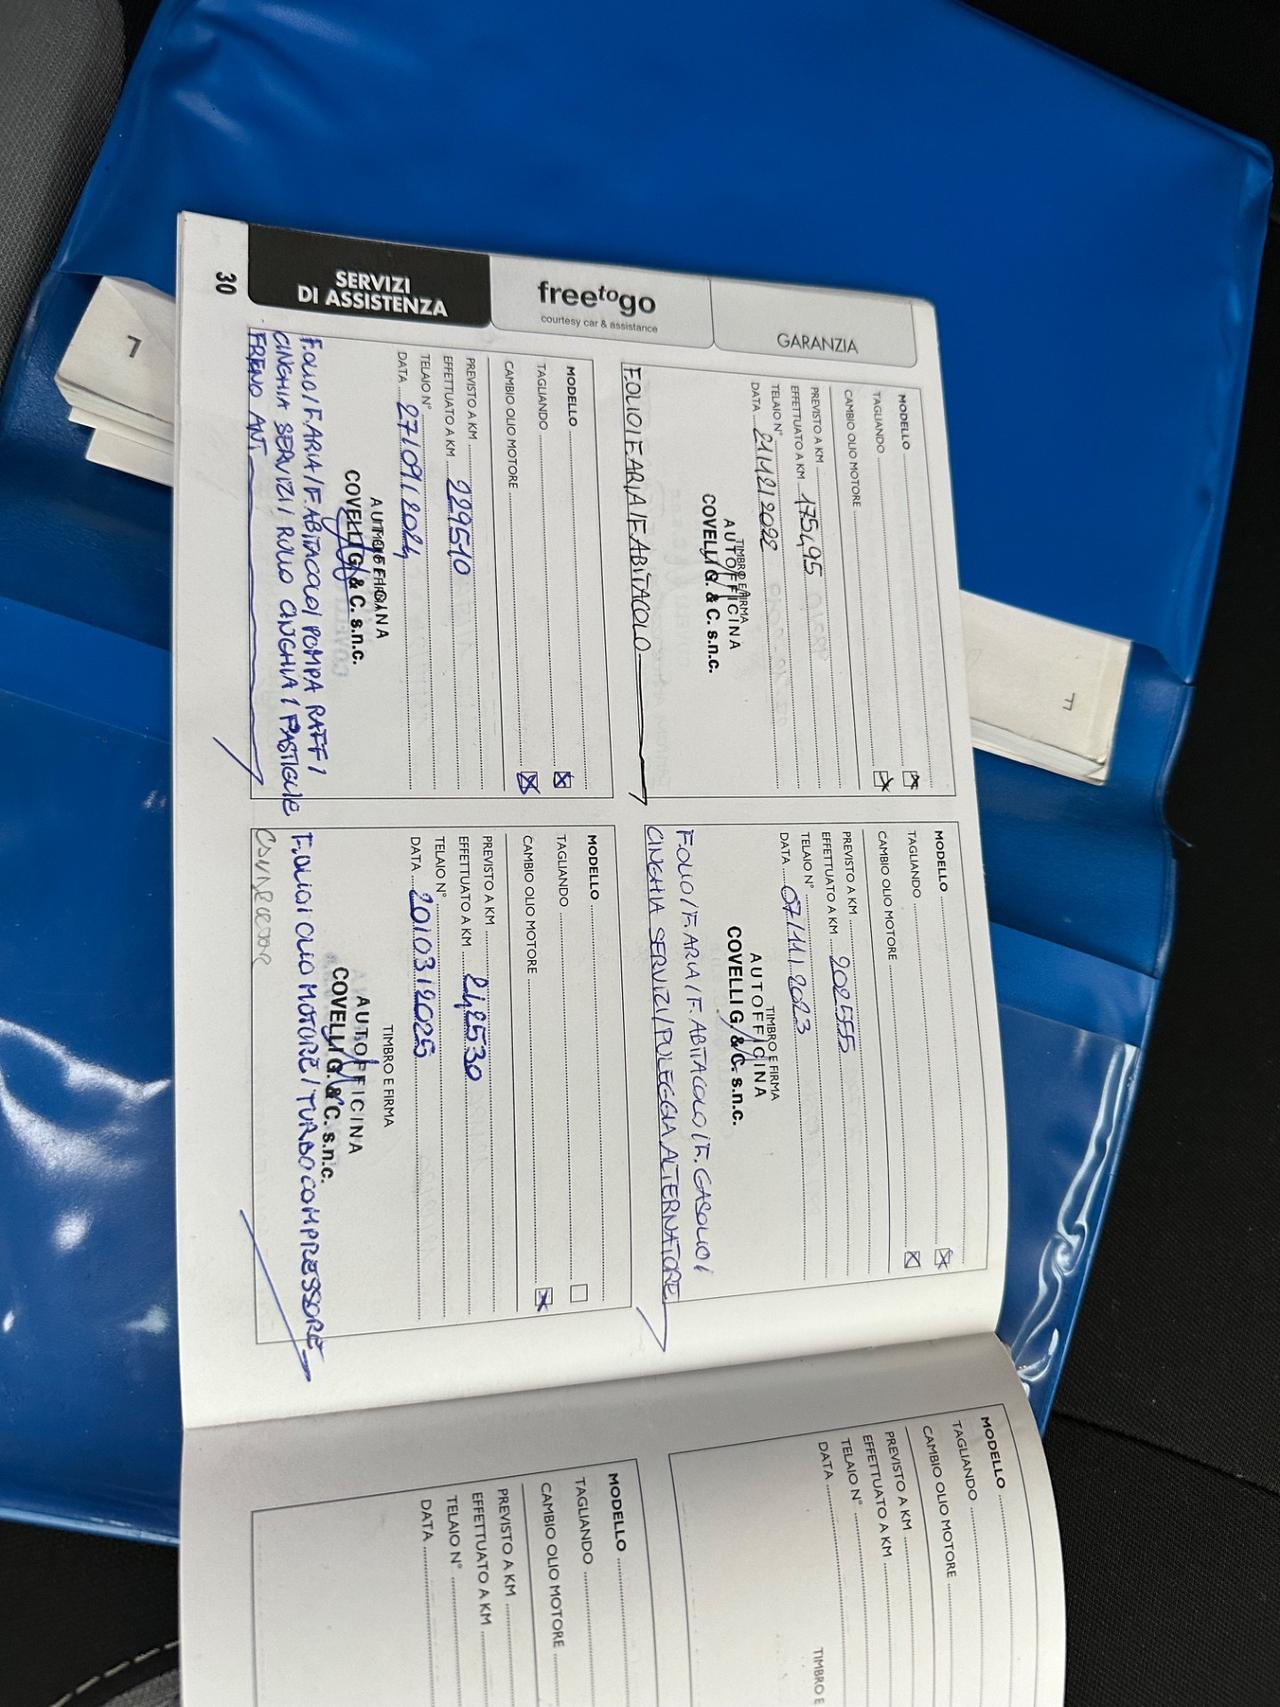 GARANZIA
freetogo
courtesy car & assistance
SERVIZI
DI ASSISTENZA
30
MODELLO
TAGLIANDO
CAMBIO OLIO MOTORE
PREVISTO A KM
EFFETTUATO A KM 175495
TELAIO N°
DATA 21/12/2022
TIMBRO E FIRMA
AUTOFFICINA
COVELLI G. & C. s.n.c.
F.OLIO/F.ARIA/F.ABITACOLO
MODELLO
TAGLIANDO
CAMBIO OLIO MOTORE
PREVISTO A KM
EFFETTUATO A KM 202555
TELAIO N°
DATA 07/11/2023
TIMBRO E FIRMA
AUTOFFICINA
COVELLI G. & C. s.n.c.
F.OLIO/F.ARIA/F.ABITACOLO/F.GASOLIO/
CINGHIA SERVIZI/PULEGGIA ALTERNATORE
MODELLO
TAGLIANDO
CAMBIO OLIO MOTORE
PREVISTO A KM
EFFETTUATO A KM 229510
TELAIO N°
DATA 27/09/2024
AUTOFFICINA
COVELLI G. & C. s.n.c.
F.OLIO/F.ARIA/F.ABITACOLO/POMPA RAFF/
CINGHIA SERVIZI/RULLO CINGHIA/PASTIGLIE
FRENO ANT.
MODELLO
TAGLIANDO
CAMBIO OLIO MOTORE
PREVISTO A KM
EFFETTUATO A KM 242530
TELAIO N°
DATA 20/03/2025
TIMBRO E FIRMA
AUTOFFICINA
COVELLI G. & C. s.n.c.
F.OLIO/OLIO MOTORE/TURBOCOMPRESSORE
MODELLO
TAGLIANDO
CAMBIO OLIO MOTORE
PREVISTO A KM
EFFETTUATO A KM
TELAIO N°
DATA
TIMBRO E
MODELLO
TAGLIANDO
CAMBIO OLIO MOTORE
PREVISTO A KM
EFFETTUATO A KM
TELAIO N°
DATA